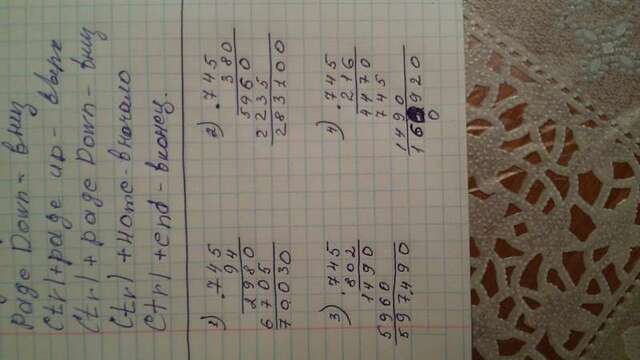 Page Down - вниз
Ctrl+page up - вверх
Ctrl + page Down - вниз
Ctrl + Home - вначало
Ctrl + end - вконец.
1) .745
94
2980
6705
70030
2) .745
380
5960
2235
283100
3) .745
802
1490
5960
597490
4) .745
216
4470
745
1490
16 920
0